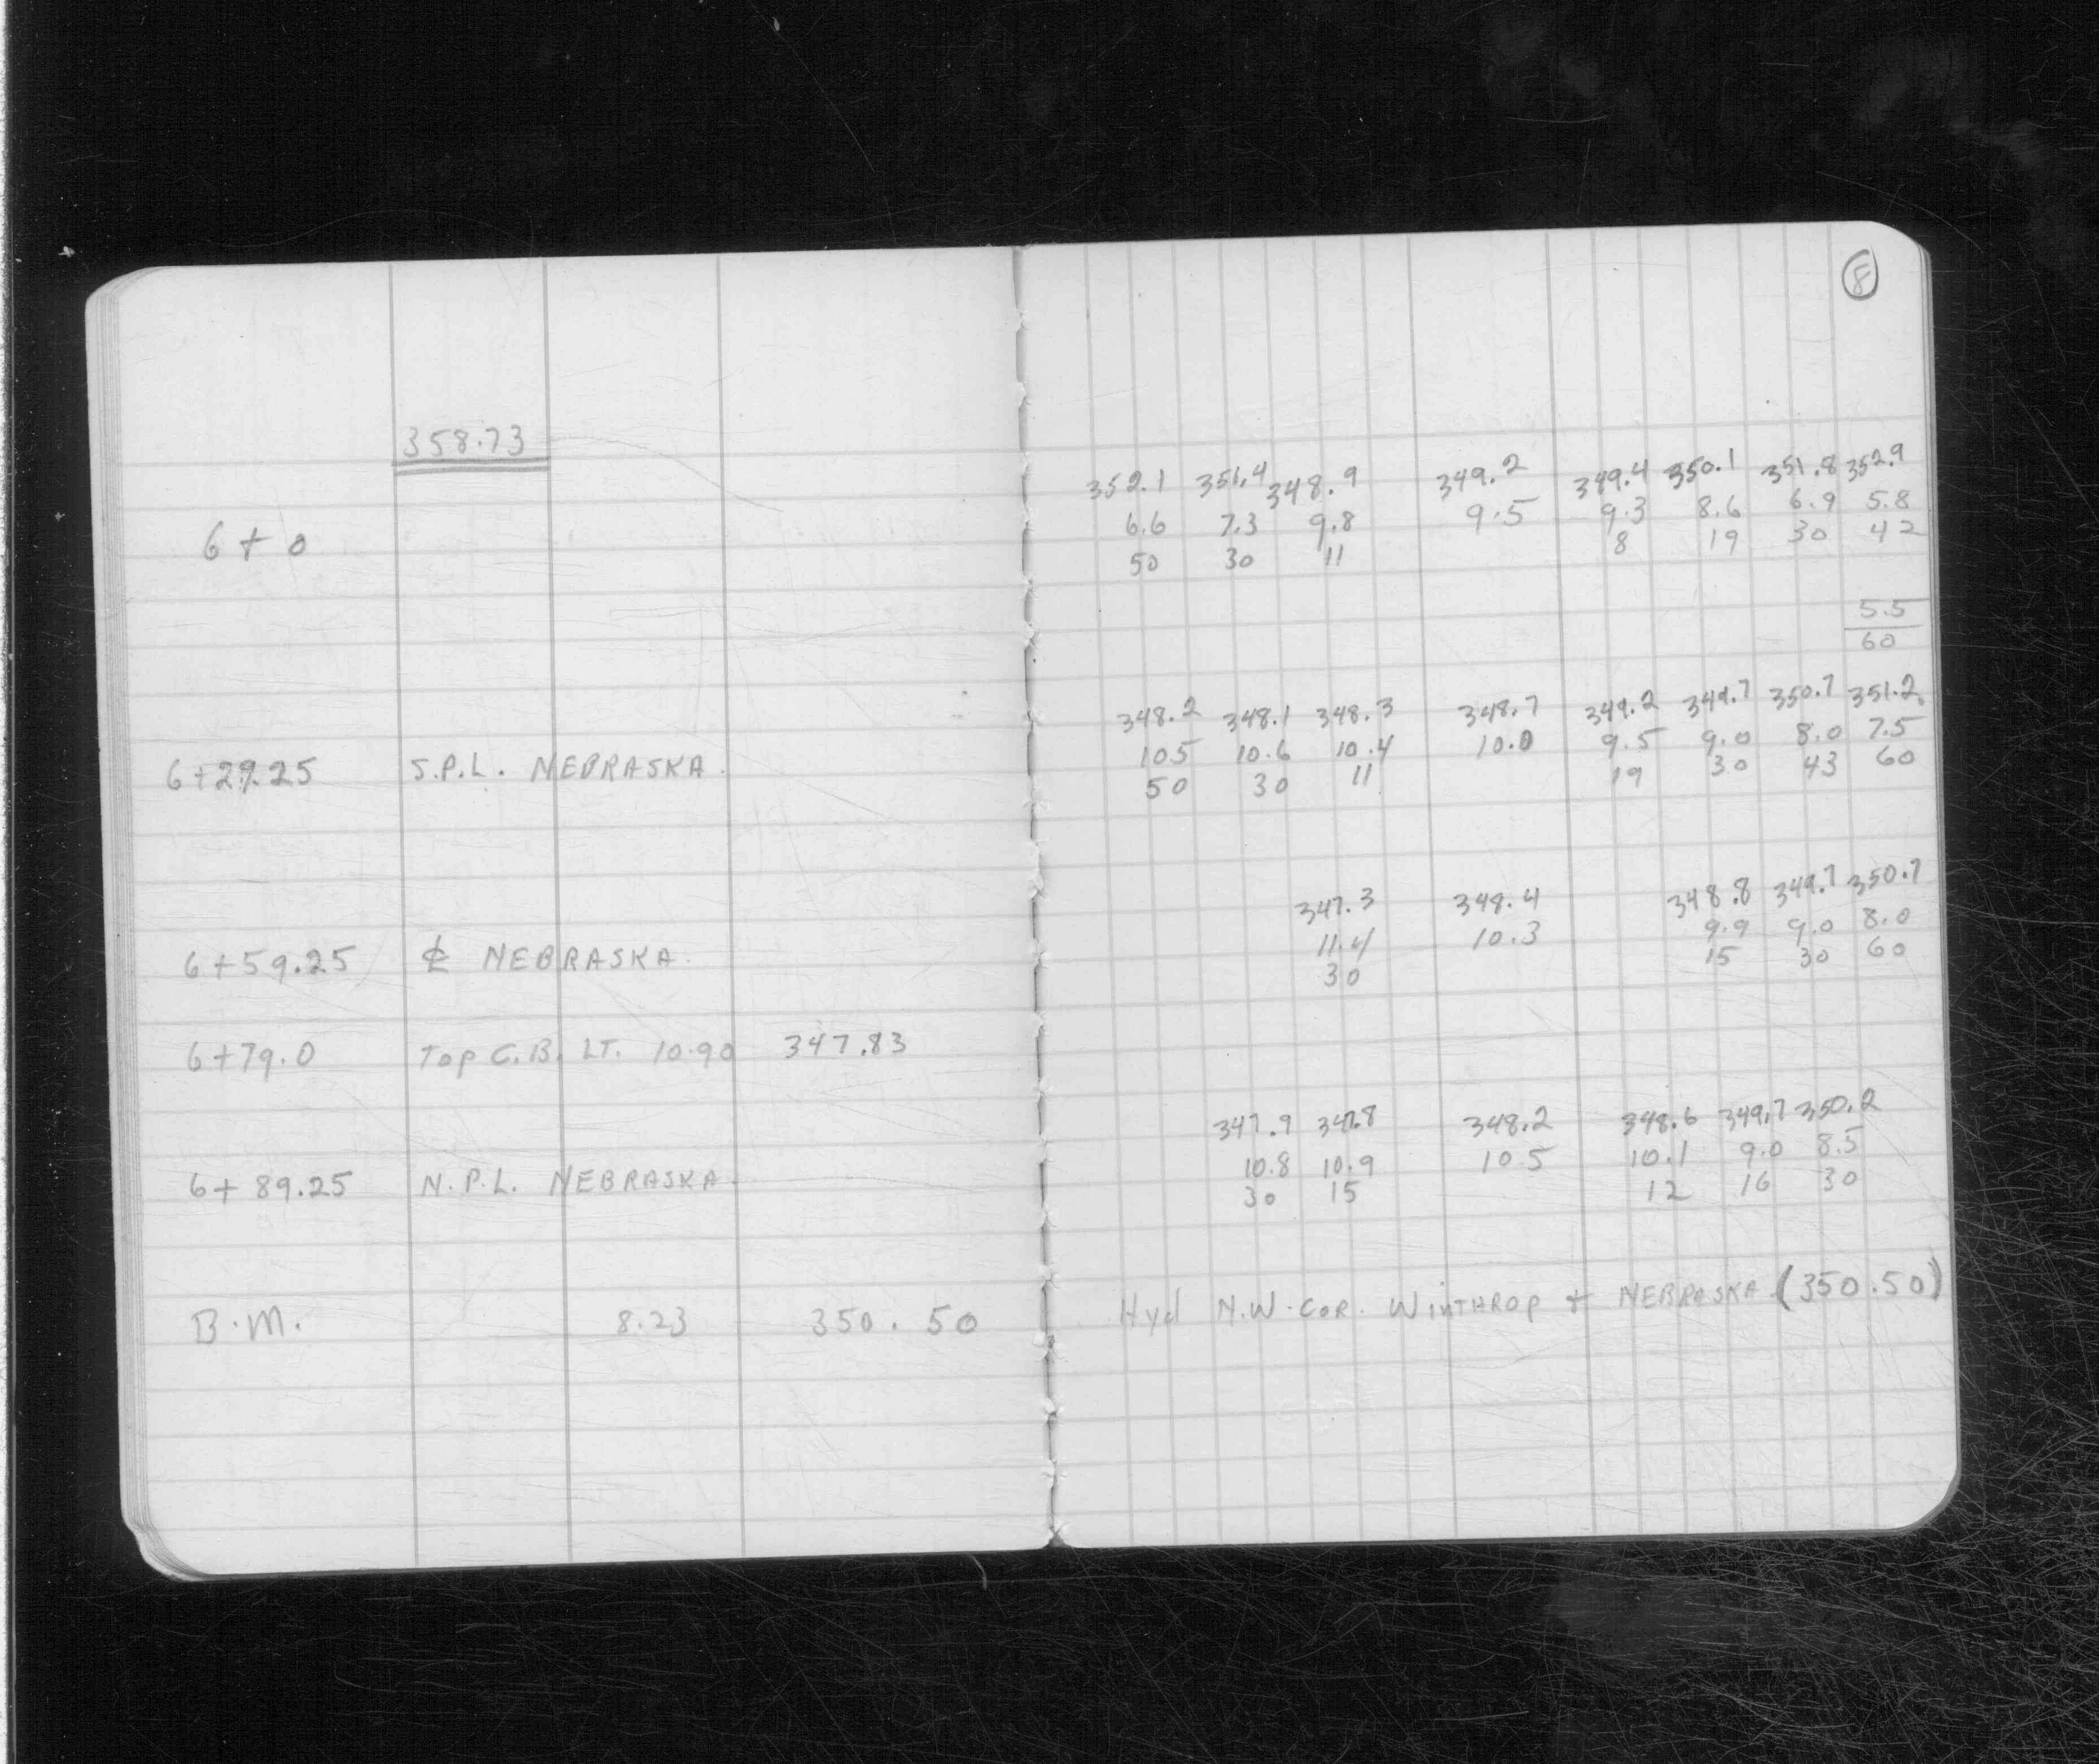 8
358.73
352.1 351.4 348.9 349.2 349.4 350.1 351.8 352.9
6.6 7.3 9.8 9.5 9.3 8.6 6.9 5.8
6+0 50 30 11 8 19 30 42
5.5
60
348.2 348.1 348.3 348.7 349.2 349.7 350.7 351.2
10.5 10.6 10.4 10.0 9.5 9.0 8.0 7.5
6+29.25 S.P.L. NEBRASKA. 50 30 11 19 30 43 60
347.3 348.4 348.8 349.7 350.7
11.4 10.3 9.9 9.0 8.0
6+59.25 ℄ NEBRASKA. 30 15 30 60
6+79.0 Top C.B. LT. 10.90 347.83
347.9 347.8 348.2 348.6 349.7 350.2
10.8 10.9 10.5 10.1 9.0 8.5
6+89.25 N.P.L. NEBRASKA. 30 15 12 16 30
B.M. 8.23 350.50 Hyd N.W. COR. WINTHROP & NEBRASKA (350.50)